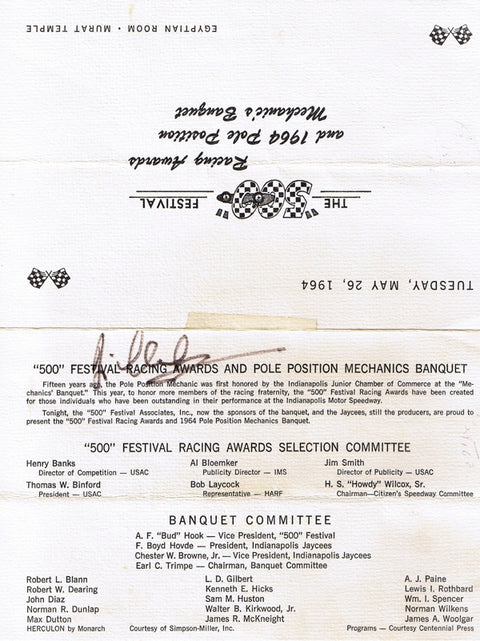 EGYPTIAN ROOM • MURAT TEMPLE
Mechanic's Banquet
and 1964 Pole Position
Racing Awards
THE 500 FESTIVAL
TUESDAY, MAY 26, 1964
"500" FESTIVAL RACING AWARDS AND POLE POSITION MECHANICS BANQUET
Fifteen years ago, the Pole Position Mechanic was first honored by the Indianapolis Junior Chamber of Commerce at the "Me-
chanics' Banquet." This year, to honor more members of the racing fraternity, the "500" Festival Racing Awards have been created
for those individuals who have been outstanding in their performance at the Indianapolis Motor Speedway.
Tonight, the "500" Festival Associates, Inc., now the sponsors of the banquet, and the Jaycees, still the producers, are proud to
present the "500" Festival Racing Awards and 1964 Pole Position Mechanics Banquet.
"500" FESTIVAL RACING AWARDS SELECTION COMMITTEE
Henry Banks
Director of Competition — USAC
Al Bloemker
Publicity Director — IMS
Jim Smith
Director of Publicity — USAC
Thomas W. Binford
President — USAC
Bob Laycock
Representative — HARF
H. S. "Howdy" Wilcox, Sr.
Chairman—Citizen's Speedway Committee
BANQUET COMMITTEE
A. F. "Bud" Hook — Vice President, "500" Festival
F. Boyd Hovde — President, Indianapolis Jaycees
Chester W. Browne, Jr. — Vice President, Indianapolis Jaycees
Earl C. Trimpe — Chairman, Banquet Committee
Robert L. Blann
Robert W. Dearing
John Diaz
Norman R. Dunlap
Max Dutton
L. D. Gilbert
Kenneth E. Hicks
Sam M. Huston
Walter B. Kirkwood, Jr.
James R. McKneight
A. J. Paine
Lewis I. Rothbard
Wm. I. Spencer
Norman Wilkens
James A. Woolgar
HERCULON by Monarch
Courtesy of Simpson-Miller, Inc.
Programs — Courtesy Centennial Press